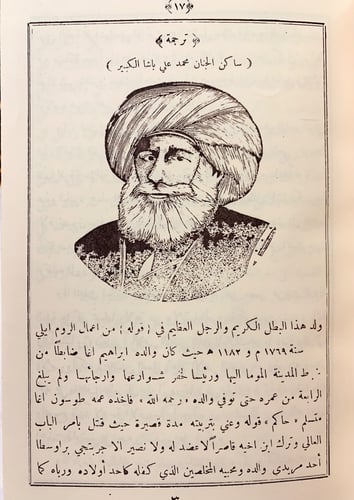 ﴿ ١٧ ﴾
﴿ ترجمة ﴾
( ساكن الجنان محمد علي باشا الكبير )
ولد هذا البطل الكريم والرجل العظيم في { قوله } من اعمال الروم ايلي
سنة ١٧٦٩ م و ١١٨٢ ھ حيث كان والده ابراهيم اغا ضابطاً من
ضباط المدينة الموما اليها ورئيسا لخفر شوارعها وارجائها ولم يبلغ
الرابعة من عمره حتى توفي والده « رحمه الله » فاخذه عمه طوسون اغا
متسلم « حاكم » قوله وعني بتربيته مدة قصيرة حيث قتل بامر الباب
العالي وترك ابن اخيه قاصراً لا عضد له ولا نصير الا جربتجي براوسطا
أحد مريدي والده ومحبيه المخلصين الذي كفله كاحد أولاده ورباه كما
٣